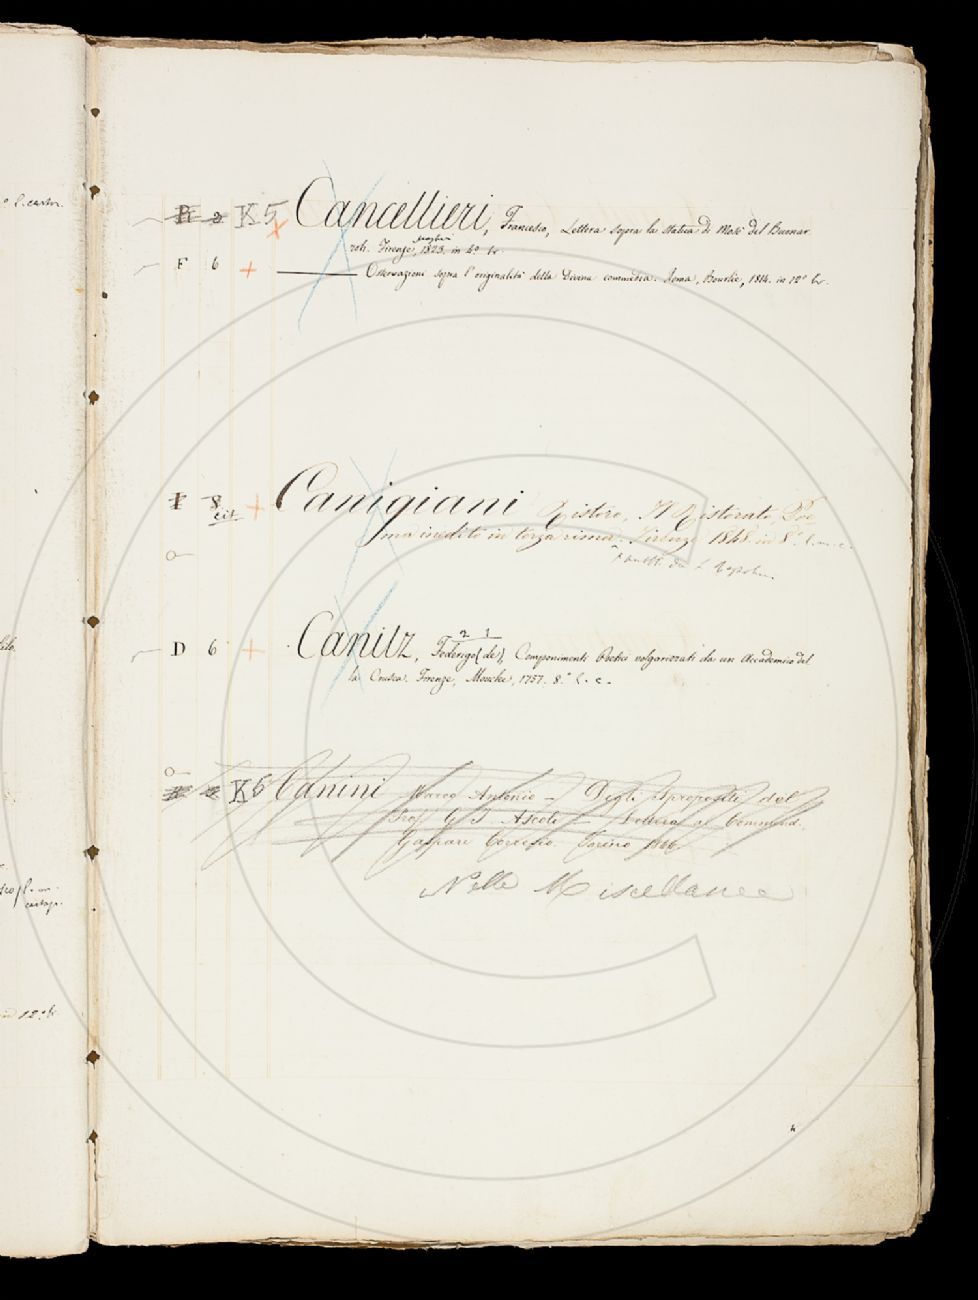 º l. carton.
K 5 Cancellieri, Francesco, Lettera sopra la statua di Mosè del Buonar-
roti. Firenze, 1823. in 4º br
F 6 + ——— Osservazioni sopra l'originalità della Divina commedia. Roma, Bourlié, 1814. in 12º br.
F 8 + Canigiani Ristoro, Il Ristorato, Poe-
cit.
ma inedito in terza rima. Firenze 1848 in 8º
2 1
D 6 + Canitz, Federigo (de), Componimenti Poetici volgarizzati da un Accademico del
la Crusca. Firenze, Moucke, 1757. 8.º l. c.
K 5 Canini Marco Antonio – Degli Spropositi del
Prof G. I. Ascoli – Lettera al Commend.
Gaspare Gorresio. Torino 1866.
Nelle Miscellanee
in 12º br